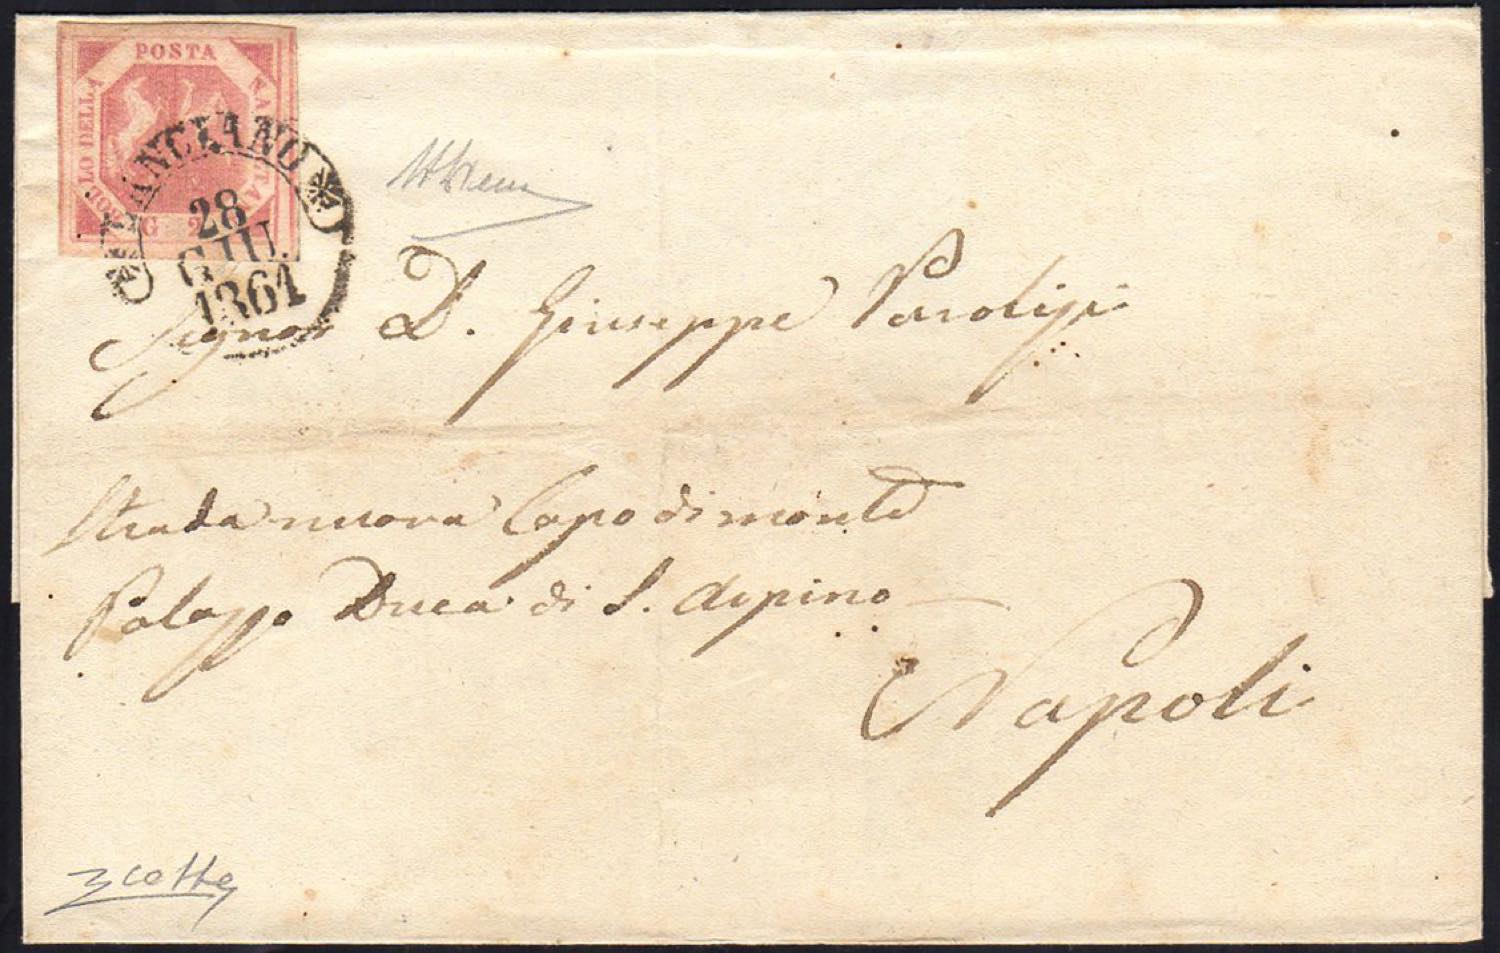 POSTA
NAPOLETANA
BOLLO DELLA
G 2
LANCIANO
28
GIU.
1861
Signor D. Giuseppe Parolisi
Strada nuova Capo di monte
Palazzo Duca di S. Arpino
Napoli